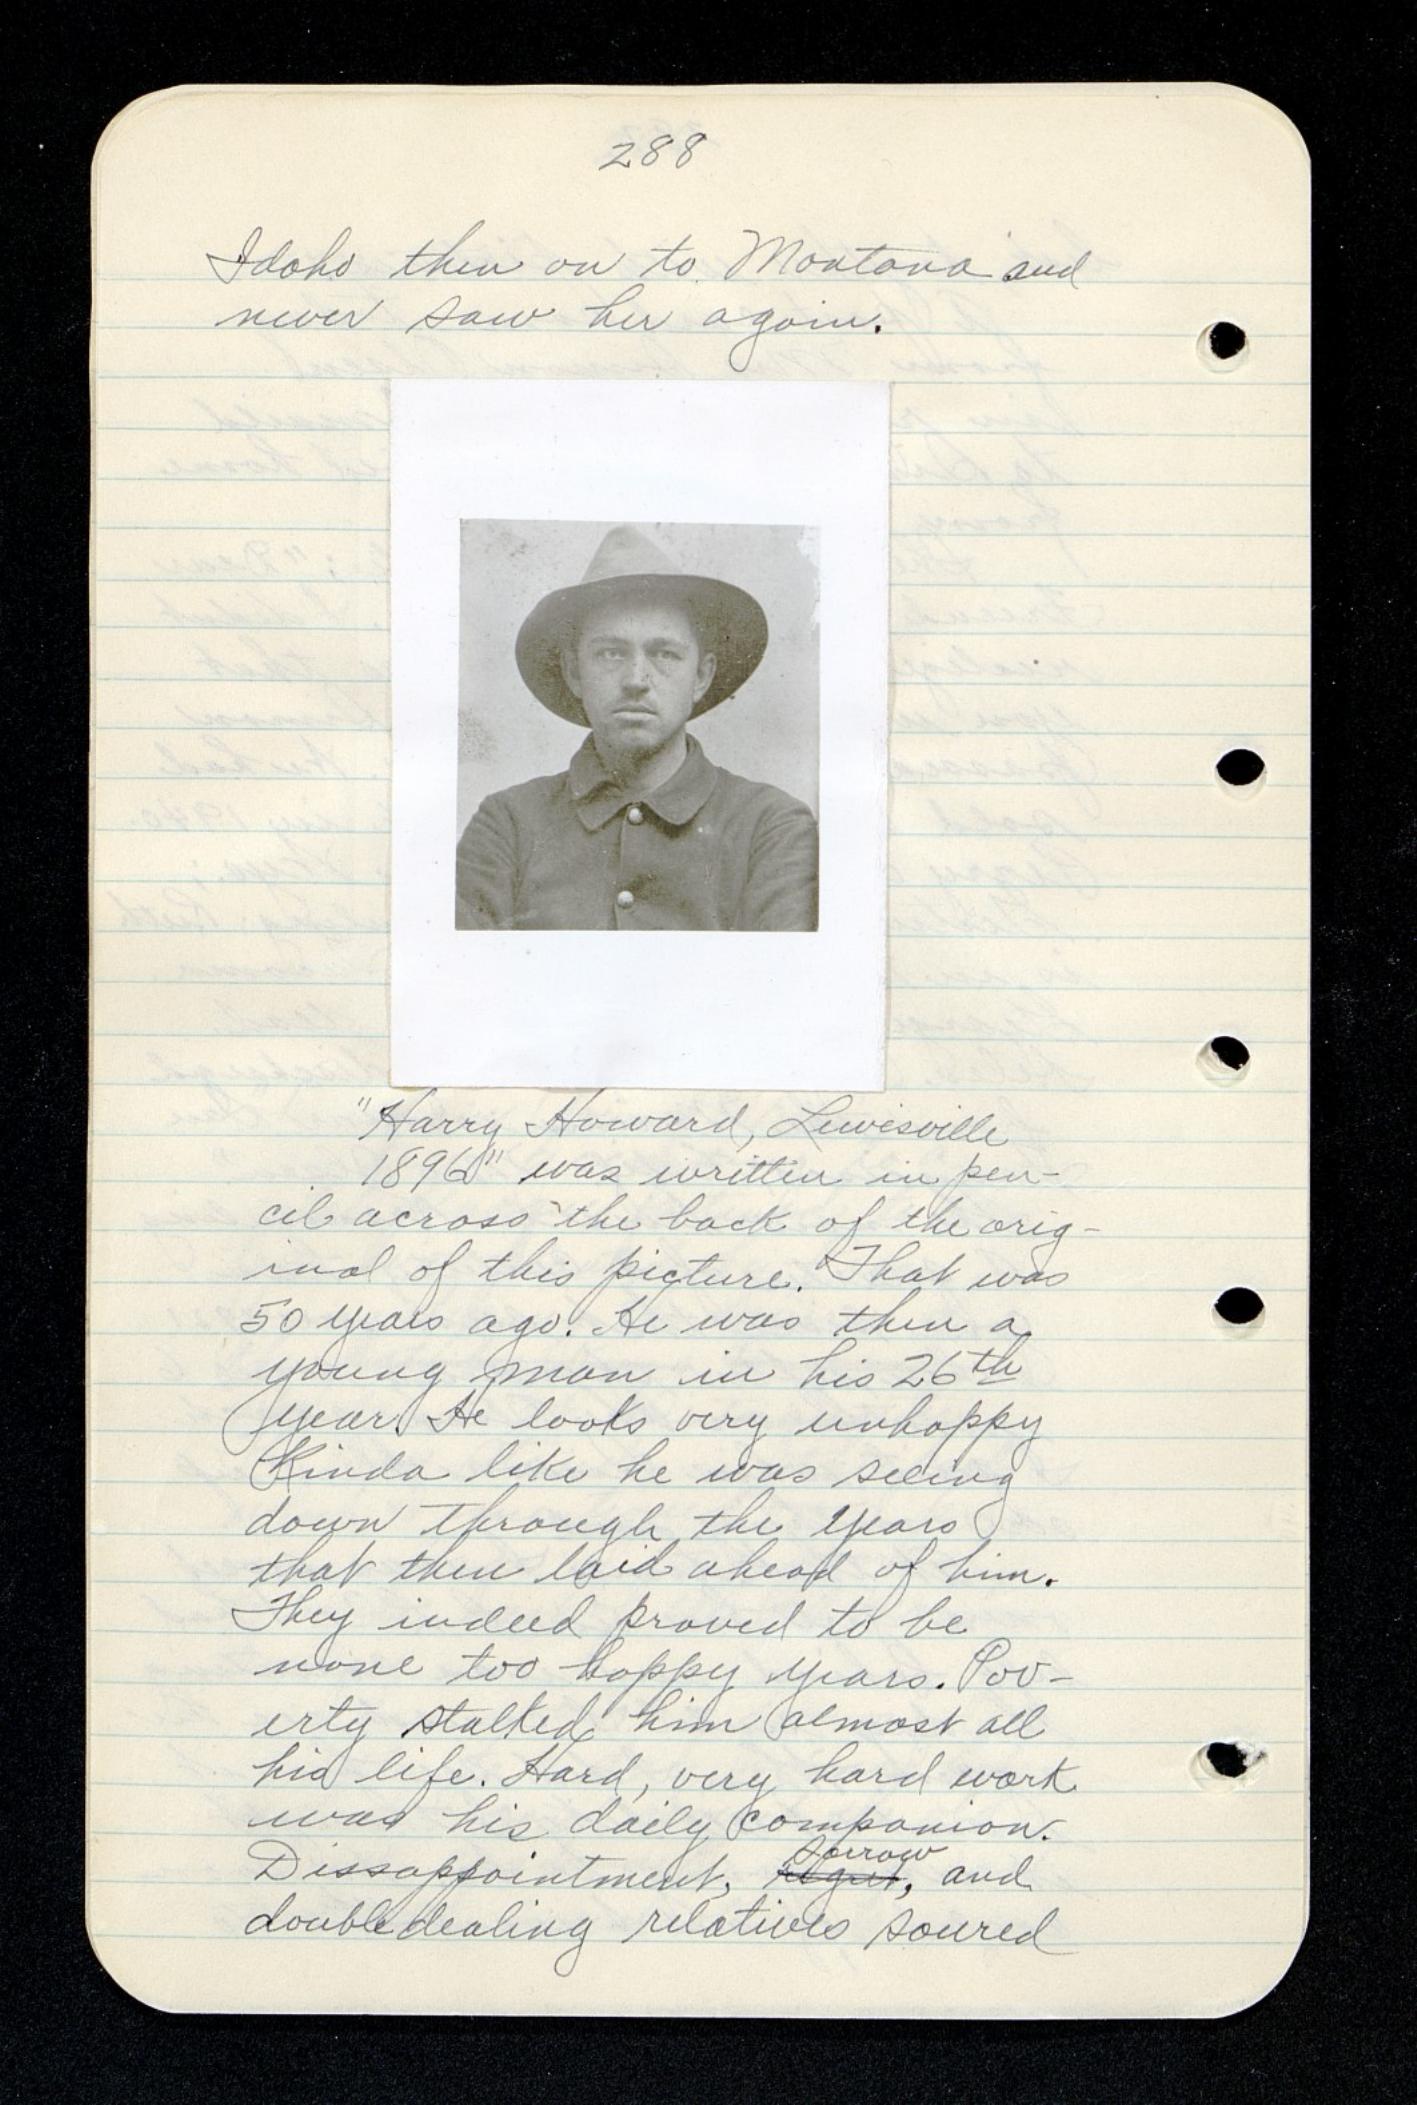 288
Idaho then on to Montana and
never saw her again.
"Harry Howard, Lewisville
1896" was written in pen-
cil across the back of the orig-
inal of this picture. That was
50 years ago. He was then a
young man in his 26th
year. He looks very unhappy
Kinda like he was seeing
down through the years
that then laid ahead of him.
They indeed proved to be
none too happy years. Pov-
erty stalked him almost all
his life. Hard, very hard work
was his daily companion.
Dissappointment, sorrow, and
doubledealing relatives soured